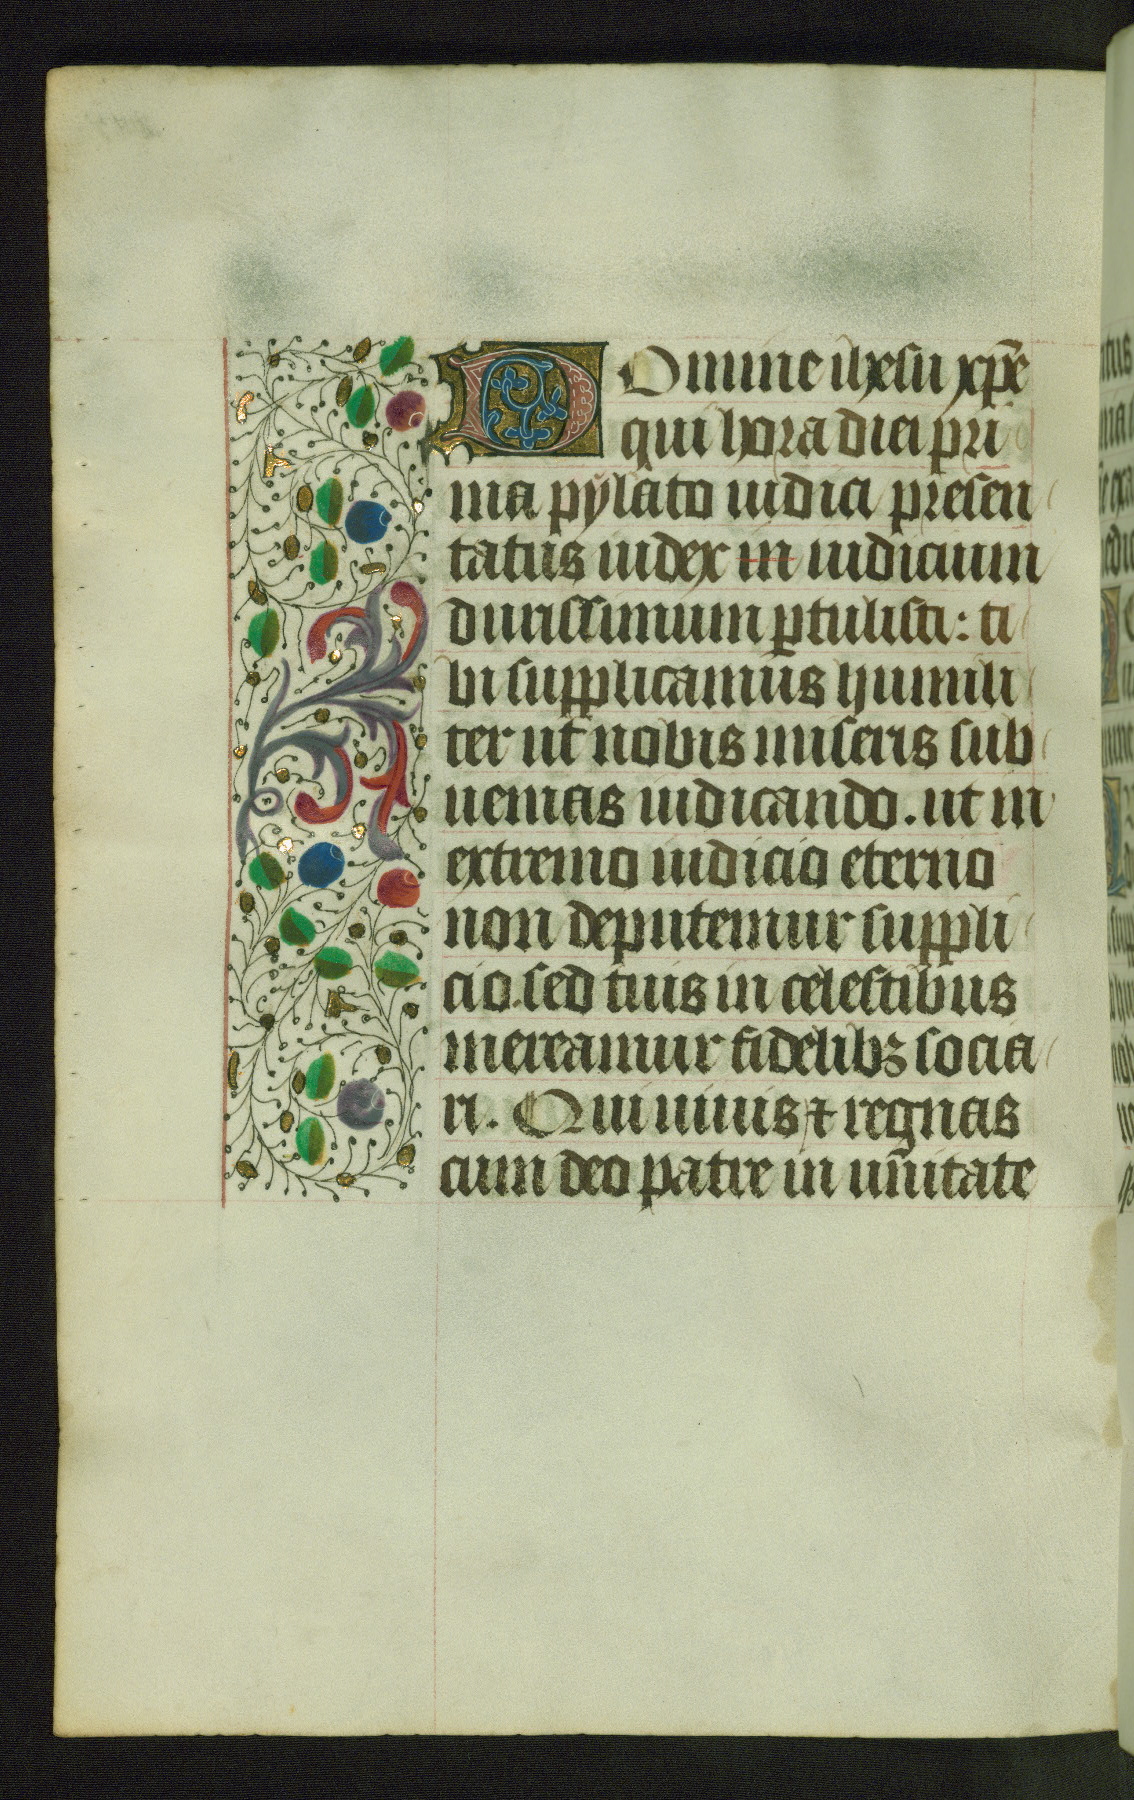 DOmine ihesu xpē
qui hora diei pri
ma pylato iudici presen
tatus iudex in iudicium
durissimum ꝑtulisti: ti
bi supplicamus humili
ter ut nobis miseris sub
uenias iudicando. ut in
extremo iudicio eterno
non deputemur suppli
cio. sed tuis in celestibus
mereamur fidelibꝫ socia
ri. Qui uiuis ⁊ regnas
cum deo patre in unitate